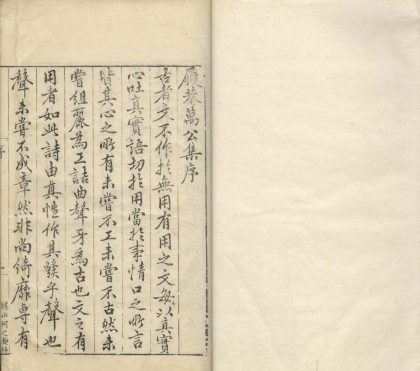 履菴萬公集序
古者文不作於無用有用之文每以真實
心吐真實語切於用當於事情口之所言
皆其心之所有未嘗不工未嘗不古然未
嘗組麗為工詰曲聱牙為古也文之有
用者如此詩由真性作其發乎聲也
聲未嘗不成章然非尚綺靡專有
序
一